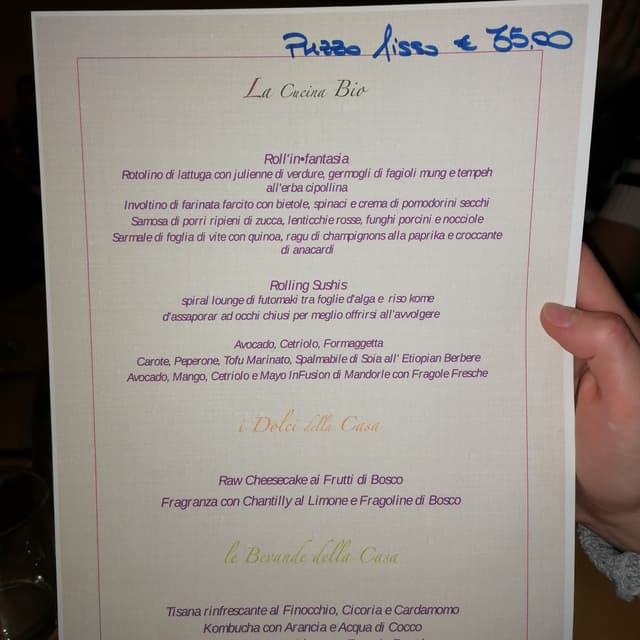 Prezzo fisso € 35.00
La Cucina Bio
Roll'in•fantasia
Rotolino di lattuga con julienne di verdure, germogli di fagioli mung e tempeh
all'erba cipollina
Involtino di farinata farcito con bietole, spinaci e crema di pomodorini secchi
Samosa di porri ripieni di zucca, lenticchie rosse, funghi porcini e nocciole
Sarmale di foglia di vite con quinoa, ragu di champignons alla paprika e croccante
di anacardi
Rolling Sushis
spiral lounge di futomaki tra foglie d'alga e riso kome
d'assaporar ad occhi chiusi per meglio offrirsi all'avvolgere
Avocado, Cetriolo, Formaggetta
Carote, Peperone, Tofu Marinato, Spalmabile di Soia all' Etiopian Berbere
Avocado, Mango, Cetriolo e Mayo InFusion di Mandorle con Fragole Fresche
i Dolci della Casa
Raw Cheesecake ai Frutti di Bosco
Fragranza con Chantilly al Limone e Fragoline di Bosco
le Bevande della Casa
Tisana rinfrescante al Finocchio, Cicoria e Cardamomo
Kombucha con Arancia e Acqua di Cocco